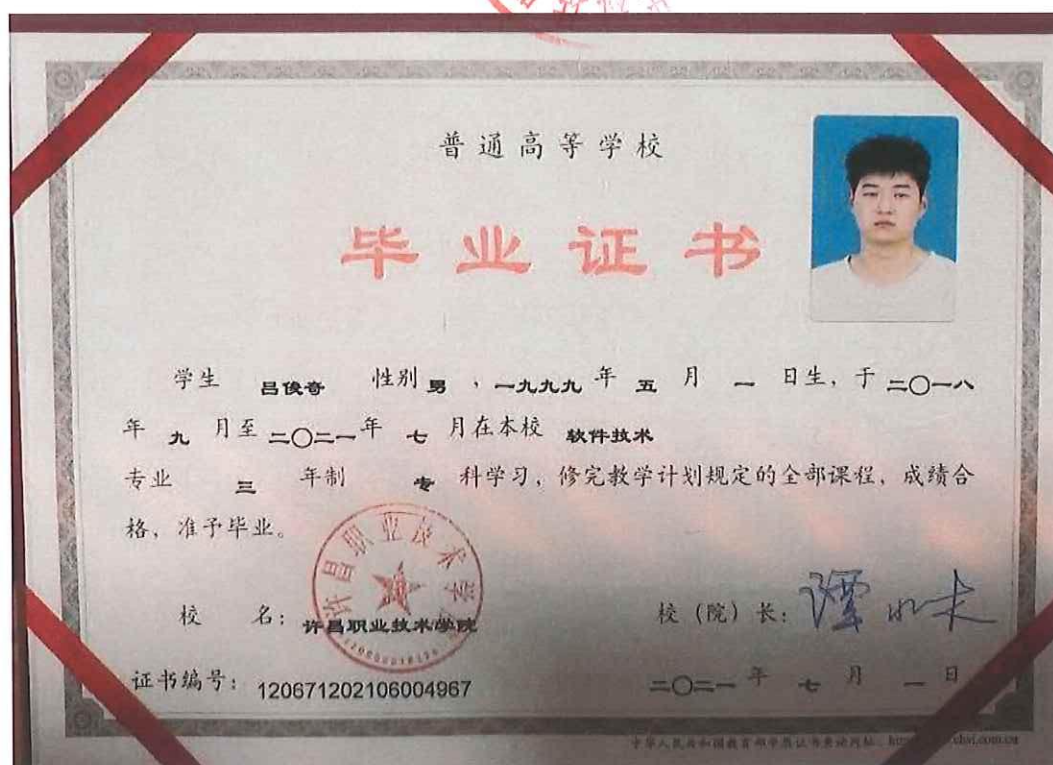 普通高等学校
毕业证书
学生 吕俊奇 性别 男 ，一九九九 年 五 月 一 日生，于 二〇一八
年 九 月至 二〇二一 年 七 月在本校 软件技术
专业 三 年制 专 科学习，修完教学计划规定的全部课程，成绩合
格，准予毕业。
许昌职业技术学
校 名：许昌职业技术学院 校（院）长：
证书编号：120671202106004967 二〇二一 年 七 月 一 日
中华人民共和国教育部学历证书查询网址：